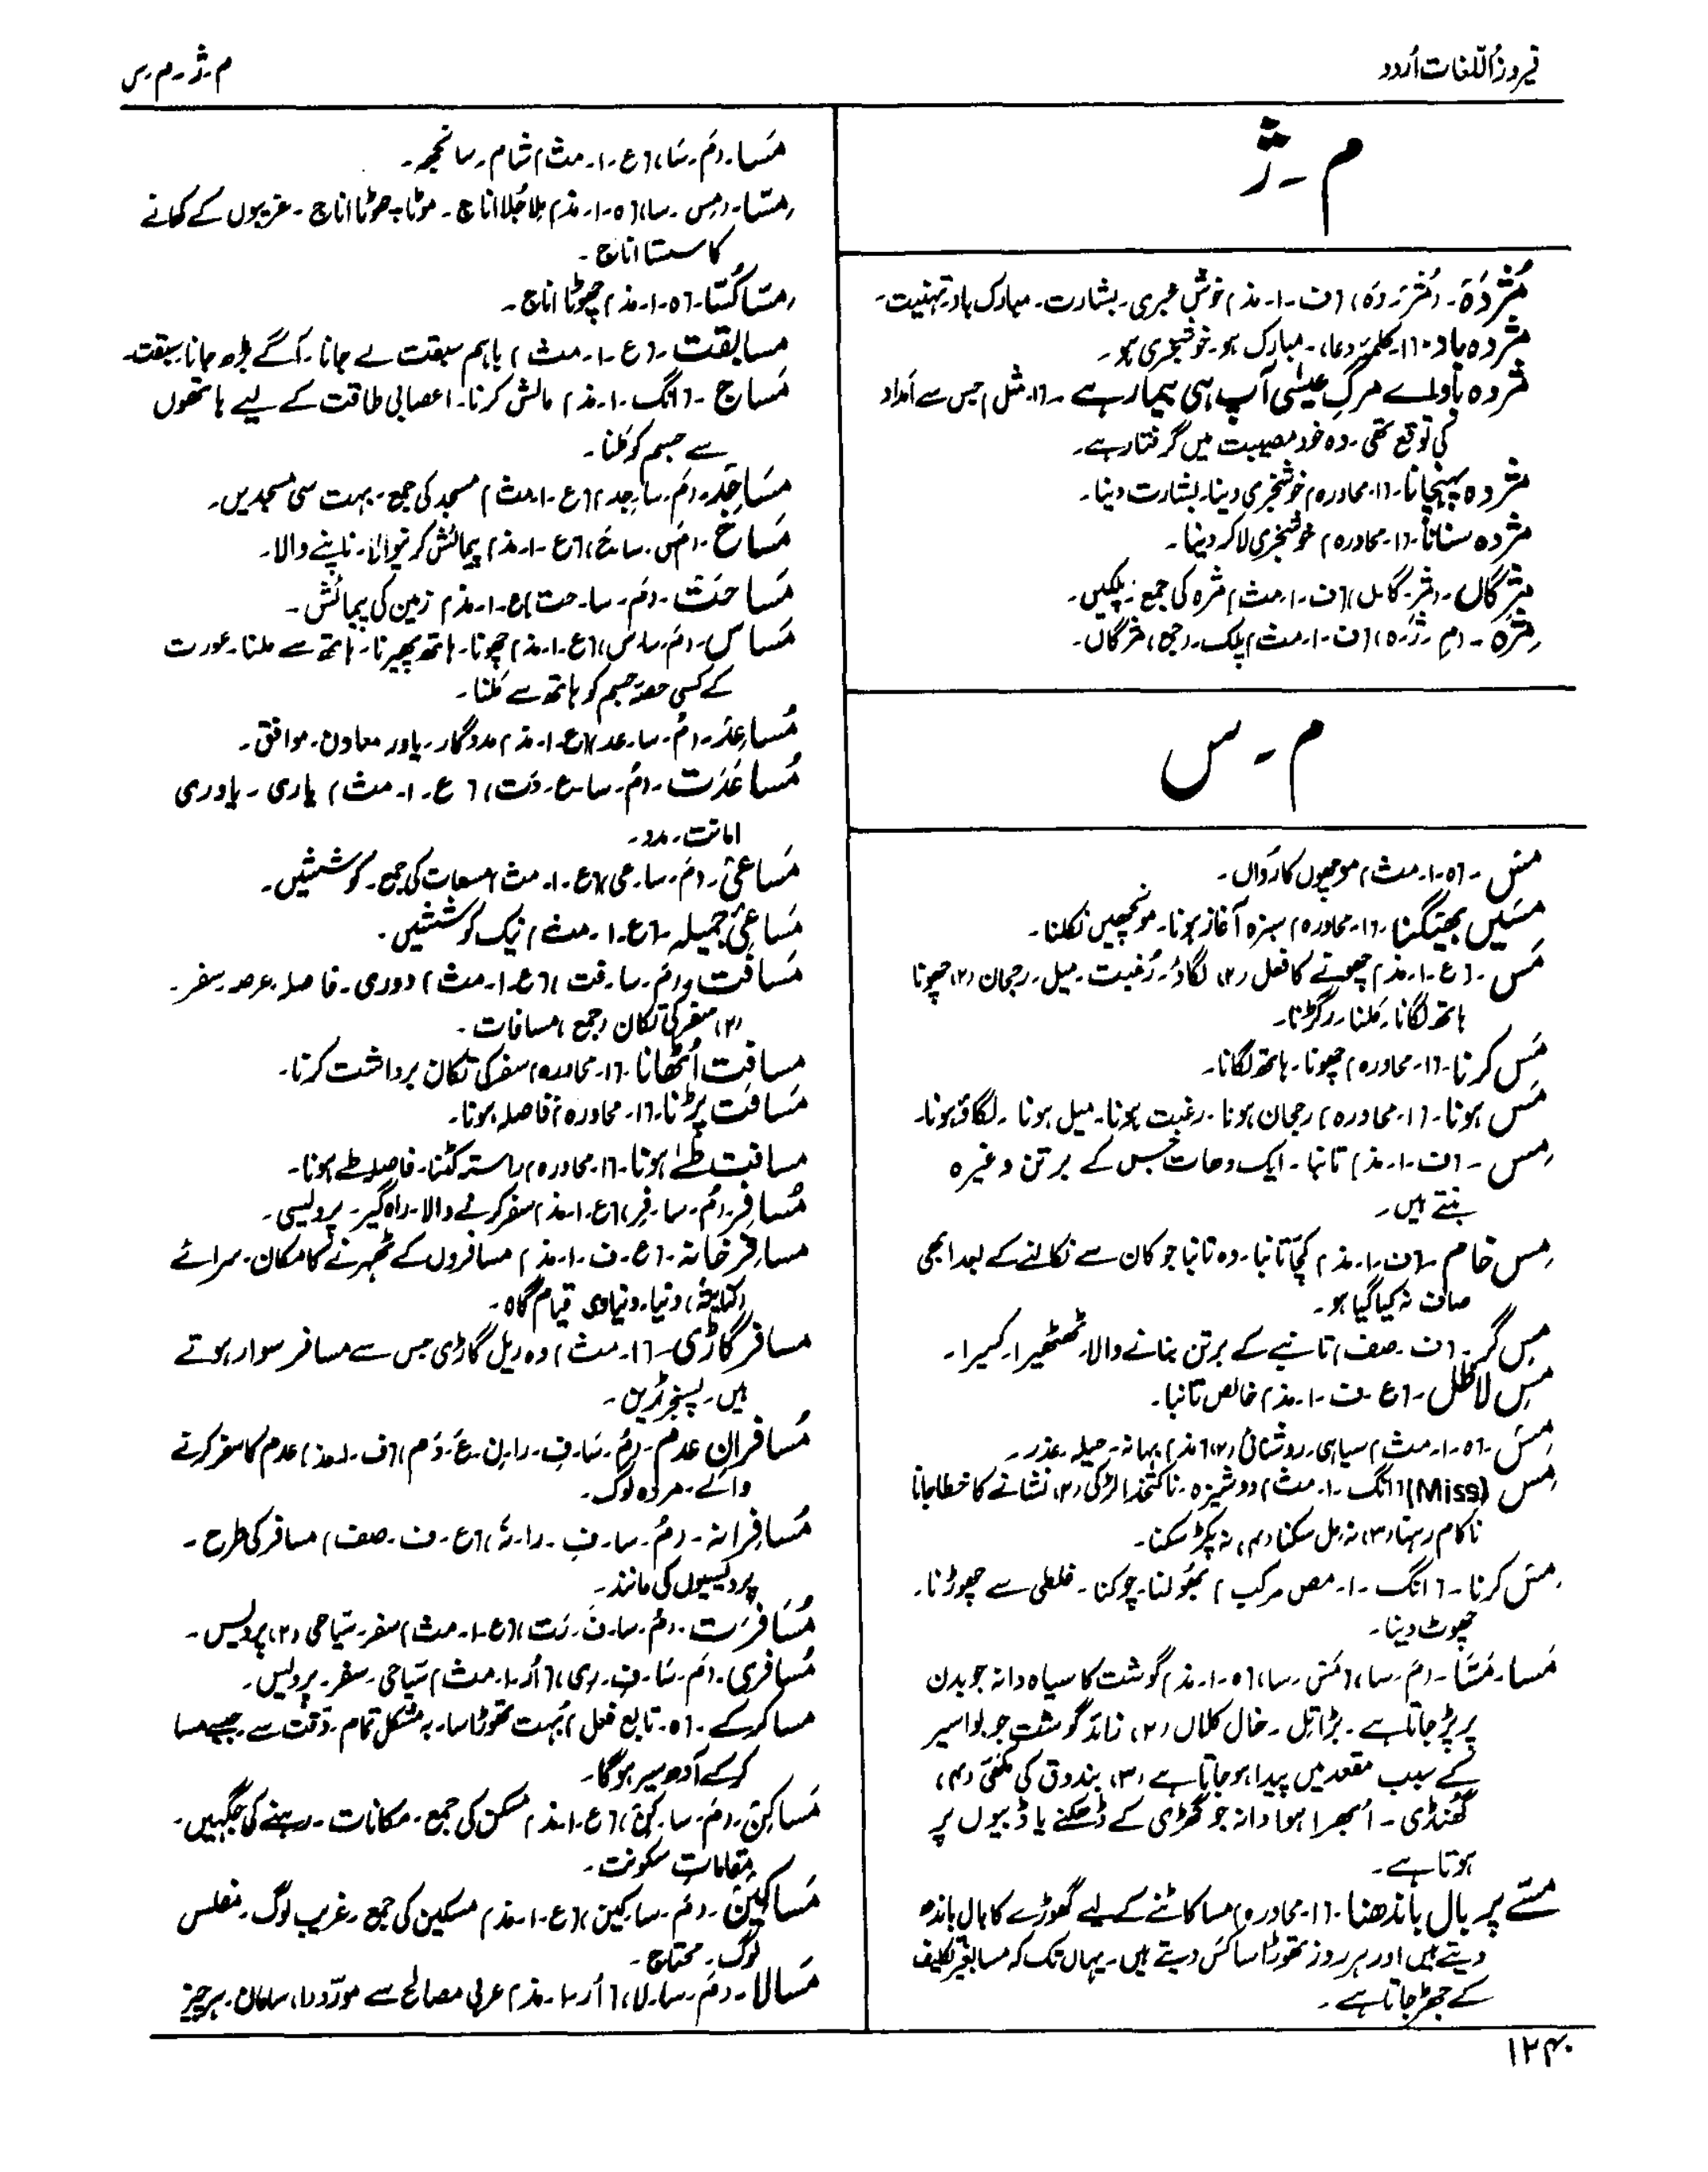 فیروز اللغات اُردو
م۔ژ۔م۔س
م۔ژ
مُژدَہ۔ (مُژ۔دَہ) [ف۔ا۔مذ] خوش خبری۔ بشارت۔ مبارک باد۔ تہنیت۔
مژدہ باد۔ [ا۔ کلمۂ دعا]۔ مبارک ہو۔ خوشخبری ہو۔
مژدہ باد اے مرگ عیسٰی آپ ہی بیمار ہے۔ [ا۔ مثل] جس سے امداد
کی توقع تھی۔ وہ خود مصیبت میں گرفتار ہے۔
مژدہ پہنچانا۔ [ا۔ محاورہ] خوشخبری دینا۔ بشارت دینا۔
مژدہ سنانا۔ [ا۔ محاورہ] خوشخبری لا کر دینا۔
مِژگاں۔ (مِژ۔گاں) [ف۔ا۔مث] مژہ کی جمع۔ پلکیں۔
مِژہ۔ (مِ۔ژَہ) [ف۔ا۔مث] پلک۔ (جمع) مژگاں۔
م۔س
مَس۔ [ہ۔ا۔مث] مونچھوں کا رُواں۔
مَسیں بھیگنا۔ [ا۔ محاورہ] سبزہ آغاز ہونا۔ مونچھیں نکلنا۔
مَس۔ [ع۔ا۔مذ] چھونے کا فعل (۲) لگاؤ۔ رغبت۔ میل۔ رجحان (۲) چھونا
ہاتھ لگانا۔ مَلنا۔ رگڑنا۔
مَس کرنا۔ [ا۔ محاورہ] چھونا۔ ہاتھ لگانا۔
مَس ہونا۔ [ا۔ محاورہ] رجحان ہونا۔ رغبت ہونا۔ میل ہونا۔ لگاؤ ہونا۔
مِس۔ [ف۔ا۔مذ] تانبا۔ ایک دھات جس کے برتن وغیرہ
بنتے ہیں۔
مِس خام۔ [ف۔ا۔مذ] کچّا تانبا۔ وہ تانبا جو کان سے نکالنے کے بعد ابھی
صاف نہ کیا گیا ہو۔
مِس گر۔ [ف۔صف] تانبے کے برتن بنانے والا۔ ٹھٹھیرا۔ کسیرا۔
مِس لاطل۔ [ع۔ف۔ا۔مذ] خالص تانبا۔
مِس۔ [ہ۔ا۔مث] سیاہی۔ روشنائی (۲) [مذ] بہانہ۔ حیلہ۔ عذر۔
مِس (Miss) [انگ۔ا۔مث] دوشیزہ۔ ناکتخدا لڑکی (۲) نشانے کا خطا جانا
ناکام رہنا (۳) نہ مل سکنا (۴) نہ پکڑ سکنا۔
مِس کرنا۔ [انگ۔ا۔مص مرکب] بھولنا۔ چوکنا۔ غلطی سے چھوڑنا۔
چھوٹ دینا۔
مَسا۔ مَسّا۔ (مَ۔سا) (مَس۔سا) [ہ۔ا۔مذ] گوشت کا سیاہ دانہ جو بدن
پر پڑ جاتا ہے۔ بڑا تِل۔ خال کلاں (۲) زائد گوشت جو بواسیر
کے سبب مقعد میں پیدا ہو جاتا ہے (۳) بندوق کی مکھی (۴)
گھُنڈی۔ اُبھرا ہوا دانہ جو گھڑی کے ڈھکنے یا ڈبیوں پر
ہوتا ہے۔
مَسّے پر بال باندھنا۔ [ا۔ محاورہ] مسا کاٹنے کے لیے گھوڑے کا بال باندھ
دیتے ہیں اور ہر روز تھوڑا سا کس دیتے ہیں۔ یہاں تک کہ مسا بغیر تکلیف
کے جھڑ جاتا ہے۔
مَسا۔ (مَ۔سَا) [ع۔ا۔مث] شام۔ سانجھ۔
مِسّا۔ (مِس۔سا) [ہ۔ا۔مذ] مِلا جُلا اناج۔ موٹا جھوٹا اناج۔ غریبوں کے کھانے
کا سستا اناج۔
مِسّا کُسّا۔ [ہ۔ا۔مذ] چھوٹا اناج۔
مسابقت۔ [ع۔ا۔مث] باہم سبقت لے جانا۔ آگے بڑھ جانا۔ سبقت۔
مَساج۔ [انگ۔ا۔مذ] مالش کرنا۔ اعصابی طاقت کے لیے ہاتھوں
سے جسم کو مَلنا۔
مَساجِد۔ (مَ۔سا۔جِد) [ع۔ا۔مث] مسجد کی جمع۔ بہت سی مسجدیں۔
مَسّاح۔ (مَس۔ساح) [ع۔ا۔مذ] پیمائش کرنیوالا۔ ناپنے والا۔
مَساحَت۔ (مَ۔سا۔حت) [ع۔ا۔مذ] زمین کی پیمائش۔
مَساس۔ (مَ۔ساس) [ع۔ا۔مذ] چھونا۔ ہاتھ پھیرنا۔ ہاتھ سے ملنا۔ عورت
کے کسی حصۂ جسم کو ہاتھ سے مَلنا۔
مُساعِد۔ (مُ۔سا۔عد) [ع۔ا۔مذ] مددگار۔ یاور۔ معاون۔ موافق۔
مُساعَدَت۔ (مُ۔سا۔ع۔دَت) [ع۔ا۔مث] یاری۔ یاوری
اعانت۔ مدد۔
مَساعی۔ (مَ۔سا۔عی) [ع۔ا۔مث] مسعات کی جمع۔ کوششیں۔
مَساعیٔ جمیلہ۔ [ع۔ا۔مث] نیک کوششیں۔
مَسافَت۔ (مَ۔سا۔فت) [ع۔ا۔مث] دوری۔ فاصلہ۔ عرصہ۔ سفر۔
(۲) سفر کی تکان (جمع) مسافات۔
مسافت اُٹھانا۔ [ا۔ محاورہ] سفر کی تکان برداشت کرنا۔
مَسافَت پڑنا۔ [ا۔ محاورہ] فاصلہ ہونا۔
مسافت طے ہونا۔ [ا۔ محاورہ] راستہ کٹنا۔ فاصلہ طے ہونا۔
مُسافِر۔ (مُ۔سا۔فِر) [ع۔ا۔مذ] سفر کرنے والا۔ راہ گیر۔ پردیسی۔
مسافر خانہ۔ [ع۔ف۔ا۔مذ] مسافروں کے ٹھہرنے کا مکان۔ سرائے
(کنایۃً) دنیا۔ دنیاوی قیام گاہ۔
مسافر گاڑی۔ [ا۔مث] وہ ریل گاڑی جس سے مسافر سوار ہوتے
ہیں۔ پسنجر ٹرین۔
مُسافرانِ عدم۔ (مُ۔سَا۔فِ۔را۔نِ۔عَ۔دَم) [ف۔ا۔مذ] عدم کا سفر کرنے
والے۔ مردہ لوگ۔
مُسافِرانہ۔ (مُ۔سا۔فِ۔را۔نَہ) [ع۔ف۔صف] مسافر کی طرح۔
پردیسیوں کی مانند۔
مُسافَرَت۔ (مُ۔سا۔فَ۔رَت) [ع۔ا۔مث] سفر۔ سیّاحی (۲) پردیس۔
مُسافری۔ (مُ۔سَا۔فِ۔ری) [اُر۔ا۔مث] سیّاحی۔ سفر۔ پردیس۔
مسا کر کے۔ [ہ۔تابع فعل] بُہت تھوڑا سا۔ بہ مشکل تمام۔ دِقّت سے جیسے مسا
کر کے آدھ سیر ہوگا۔
مَساکِن۔ (مَ۔سا۔کِن) [ع۔ا۔مذ] مسکن کی جمع۔ مکانات۔ رہنے کی جگہیں۔
مقاماتِ سکونت۔
مَساکین۔ (مَ۔سا۔کین) [ع۔ا۔مذ] مسکین کی جمع۔ غریب لوگ۔ مفلس
لوگ۔ محتاج۔
مَسالا۔ (مَ۔سا۔لا) [اُر۔ا۔مذ] عربی مصالح سے مورّد (۱) سامان۔ ہر چیز
۱۲۴۰